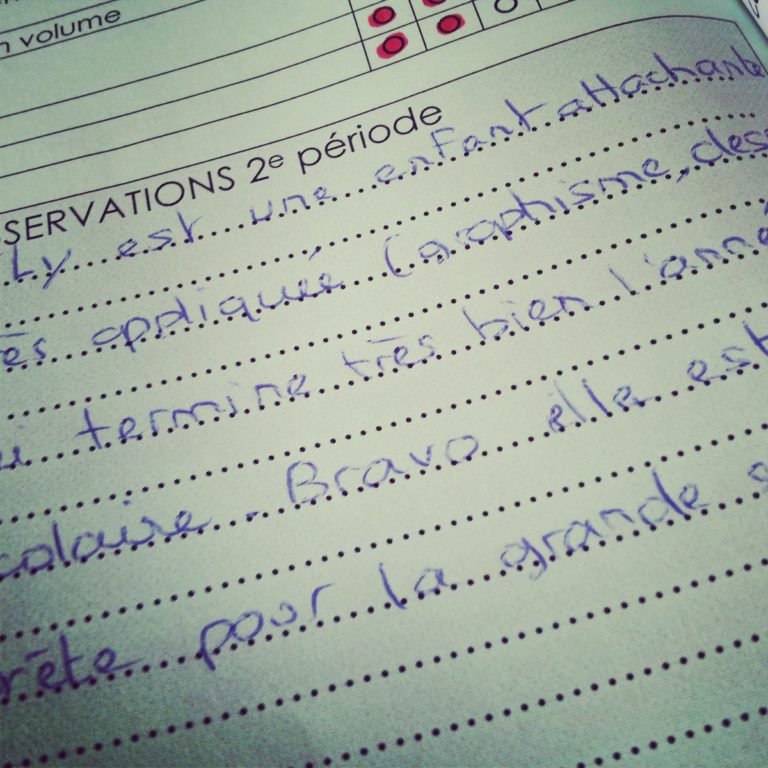 n volume
SERVATIONS 2e période
Ly est une enfant attachante
ès appliquée (graphisme, dess
i termine très bien l'anné
colaire. Bravo elle est
rête pour la grande s